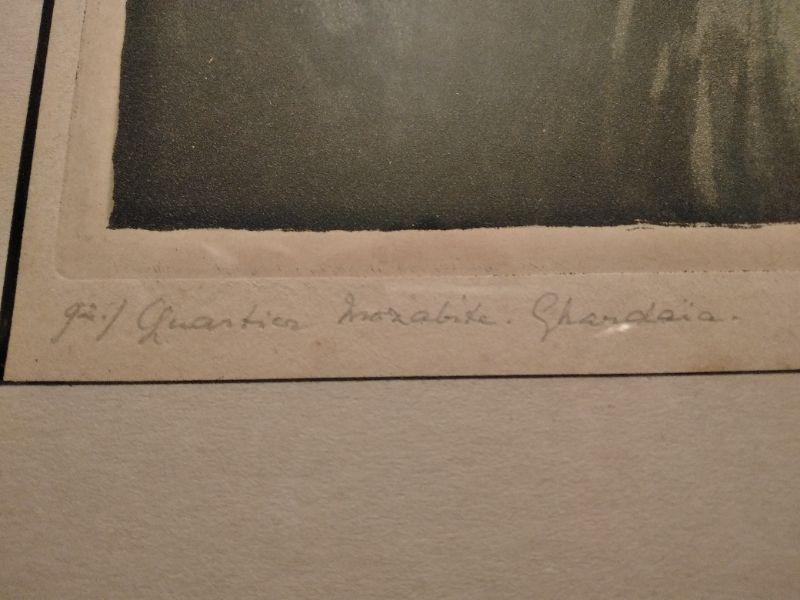 Quartier Mozabite. Ghardaïa.